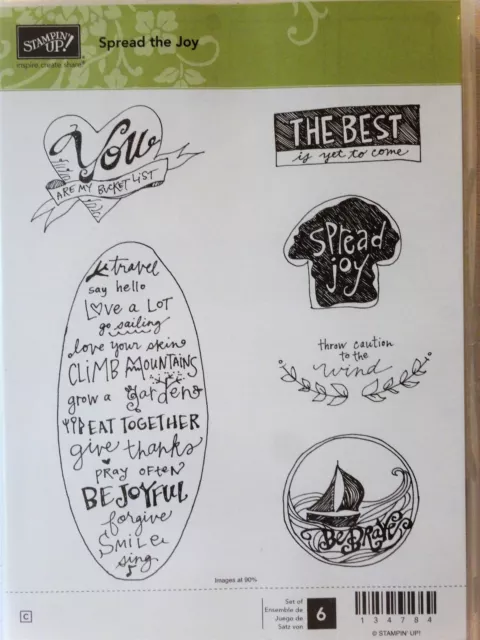 STAMPIN' UP!
inspire.create.share
Spread the Joy
You
ARE MY BUCKET LIST
THE BEST
is yet to come
travel
say hello
Love a LOT
go sailing
love your skin
CLIMB MOUNTAINS
grow a garden
EAT TOGETHER
give thanks
PRAY OFTEN
BE JOYFUL
forgive
SMILE
sing
spread
joy
throw caution
to the
wind
BE BRAVE
Images at 90%
C
Set of
Ensemble de
Juego de
Satz von
6
134784
© STAMPIN' UP!